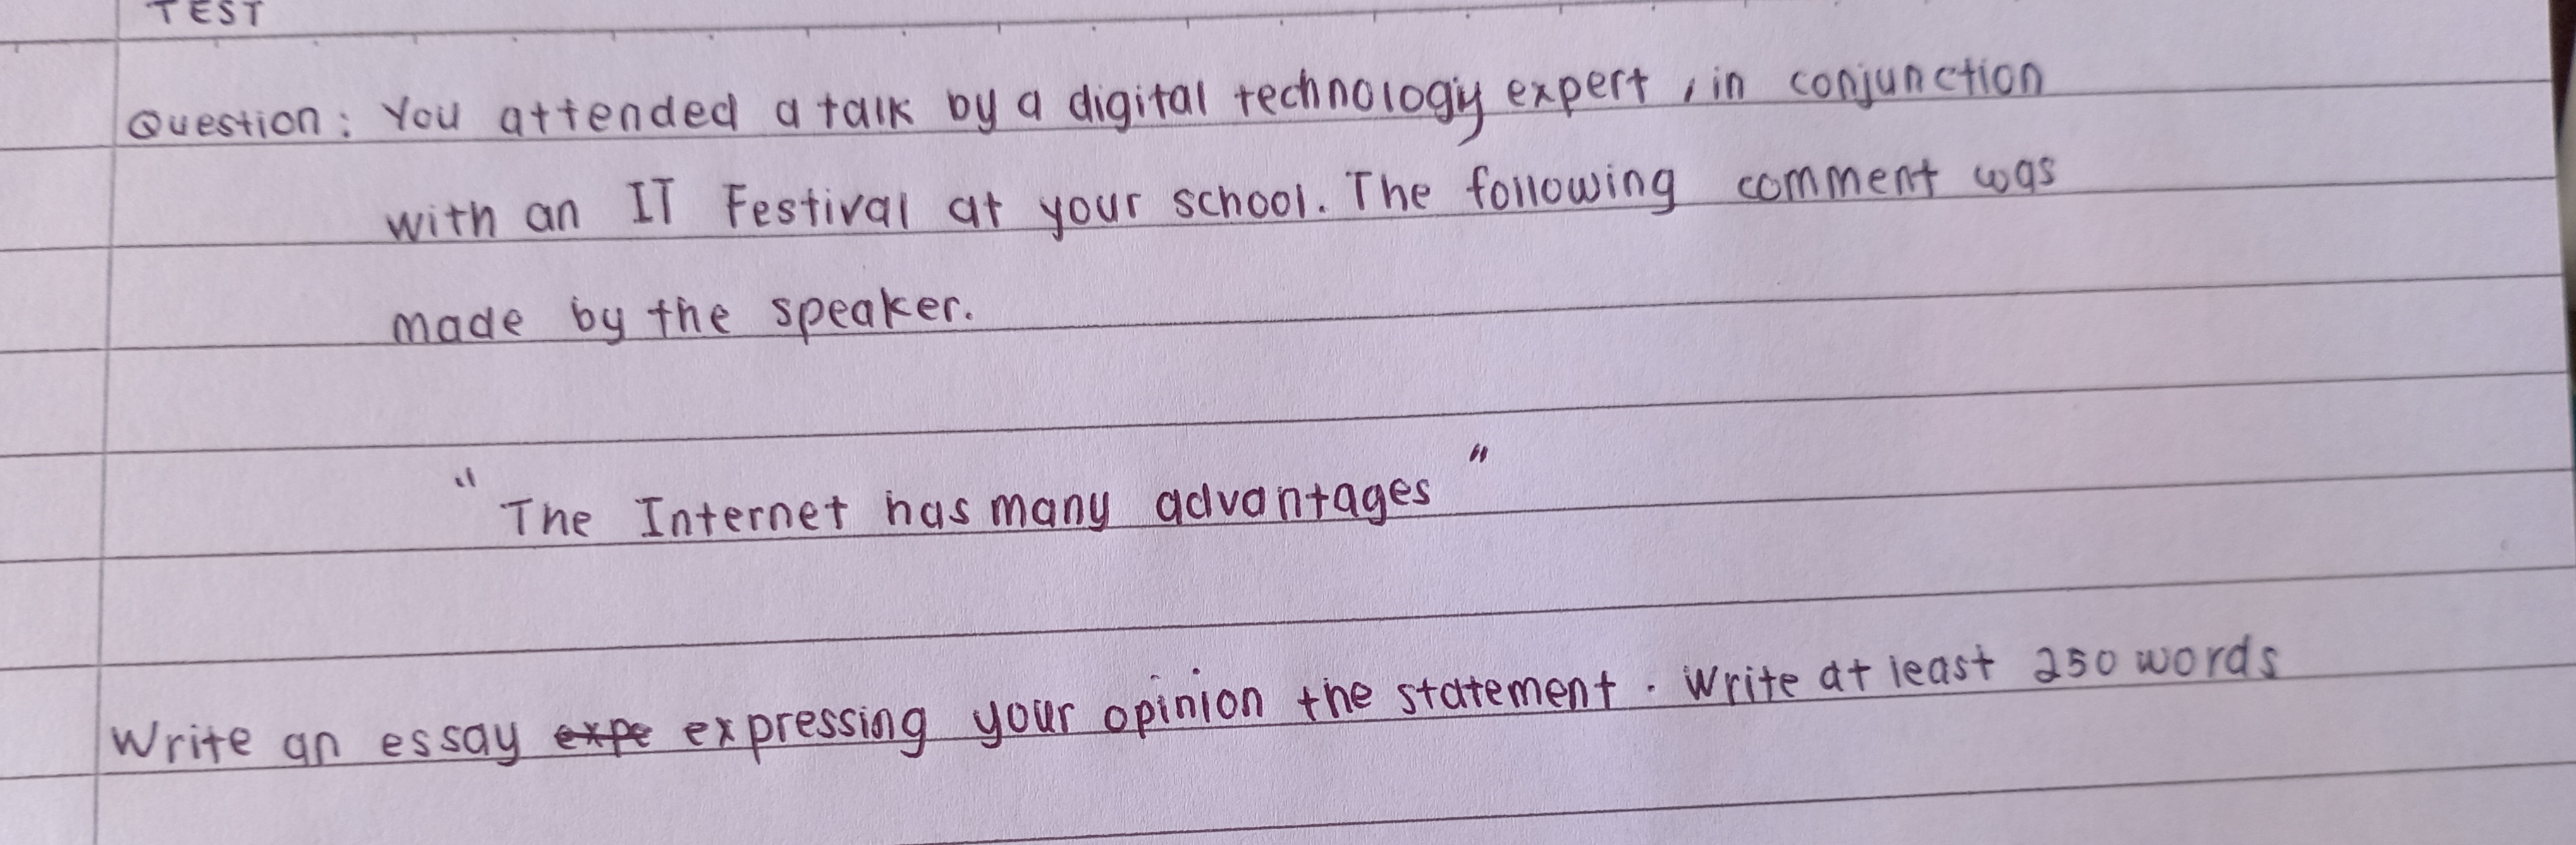 TEST
Question: You attended a talk by a digital technology expert, in conjunction
with an IT Festival at your school. The following comment was
made by the speaker.
"The Internet has many advantages"
Write an essay expe expressing your opinion the statement. Write at least 250 words